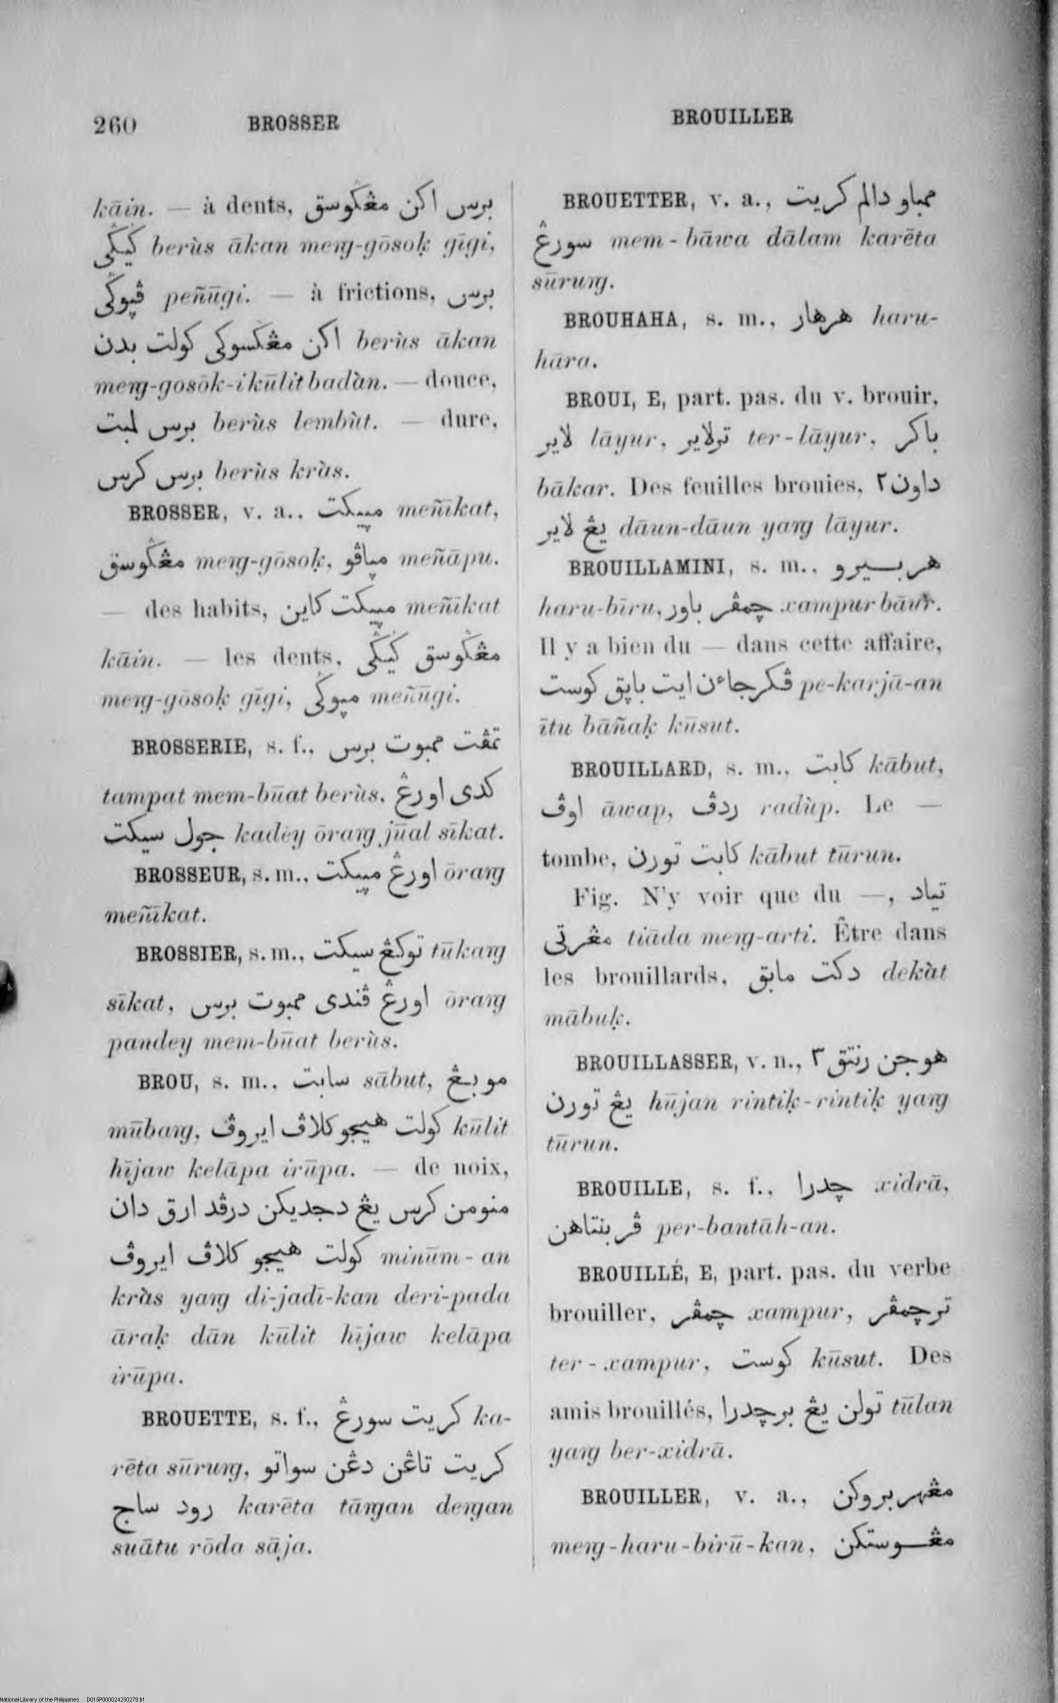 260 BROSSER
BROUILLER
kāin. — à dents, برس اکن مڠݢوسق
ݢيݢي berùs ākan meng-gōsoḳ gīgi,
ڤپوݢي peñūgi. — à frictions, برس
اکن مڠݢسوکي کولت بدن berùs ākan
meng-gosōk-i kūlit badàn. — douce,
برس لمبت berùs lembùt. — dure,
برس کرس berùs kràs.
BROSSER, v. a., مپيکت meñīkat,
مڠݢوسق meng-gōsoḳ, مپاڤو meñāpu.
— des habits, مپيکت کاين meñīkat
kāin. — les dents, مڠݢوسق ݢيݢي
meng-gōsoḳ gīgi, مپوݢي meñūgi.
BROSSERIE, s. f., تمڤت ممبوت برس
tampat mem-būat berùs, کدی اورڠ
جول سيکت kadèy ōrang jūal sīkat.
BROSSEUR, s. m., اورڠ مپيکت ōrang
meñīkat.
BROSSIER, s. m., توکڠ سيکت tūkang
sīkat, اورڠ ڤندی ممبوت برس ōrang
pandey mem-būat berùs.
BROU, s. m., سابت sābut, موبڠ
mūbang, کولت هيجو کلاڤ ايروڤ kūlit
hījaw kelāpa irūpa. — de noix,
منومن کرس يڠ دجديکن درڤد ارق دان
کولت هيجو کلاڤ ايروڤ minūm-an
kràs yang di-jadī-kan deri-pada
āraḳ dān kūlit hījaw kelāpa
irūpa.
BROUETTE, s. f., کريت سورڠ ka-
rēta sūrung, کريت تاڠن دڠن سواتو
رود ساج karēta tāngan dengan
suātu rōda sāja.
BROUETTER, v. a., ممباو دالم کريت
سورڠ mem-bāwa dālam karēta
sūrung.
BROUHAHA, s. m., هرهار haru-
hāra.
BROUI, E, part. pas. du v. brouir,
لاير lāyur, ترلاير ter-lāyur, باکر
bākar. Des feuilles brouies, داون٢
يڠ لاير dāun-dāun yang lāyur.
BROUILLAMINI, s. m., هربيرو
haru-bīru, چمڤر باور xampur bāur.
Il y a bien du — dans cette affaire,
ڤکرجاءن ايت باپق کوست pe-karjā-an
ītu bāñaḳ kūsut.
BROUILLARD, s. m., کابت kābut,
اوڤ āwap, ردڤ radùp. Le —
tombe, کابت تورن kābut tūrun.
Fig. N'y voir que du —, تياد
مڠرتی tiāda meng-arti. Être dans
les brouillards, دکت مابق dekàt
mābuḳ.
BROUILLASSER, v. n., هوجن رنتق٢
يڠ تورن hūjan rintiḳ-rintiḳ yang
tūrun.
BROUILLE, s. f., چدرا xidrā,
ڤربنتاهن per-bantāh-an.
BROUILLÉ, E, part. pas. du verbe
brouiller, چمڤر xampur, ترچمڤر
ter-xampur, کوست kūsut. Des
amis brouillés, تولن يڠ برچدرا tūlan
yang ber-xidrā.
BROUILLER, v. a., مڠهربروکن
meng-haru-birū-kan, مڠوستکن
National Library of the Philippines